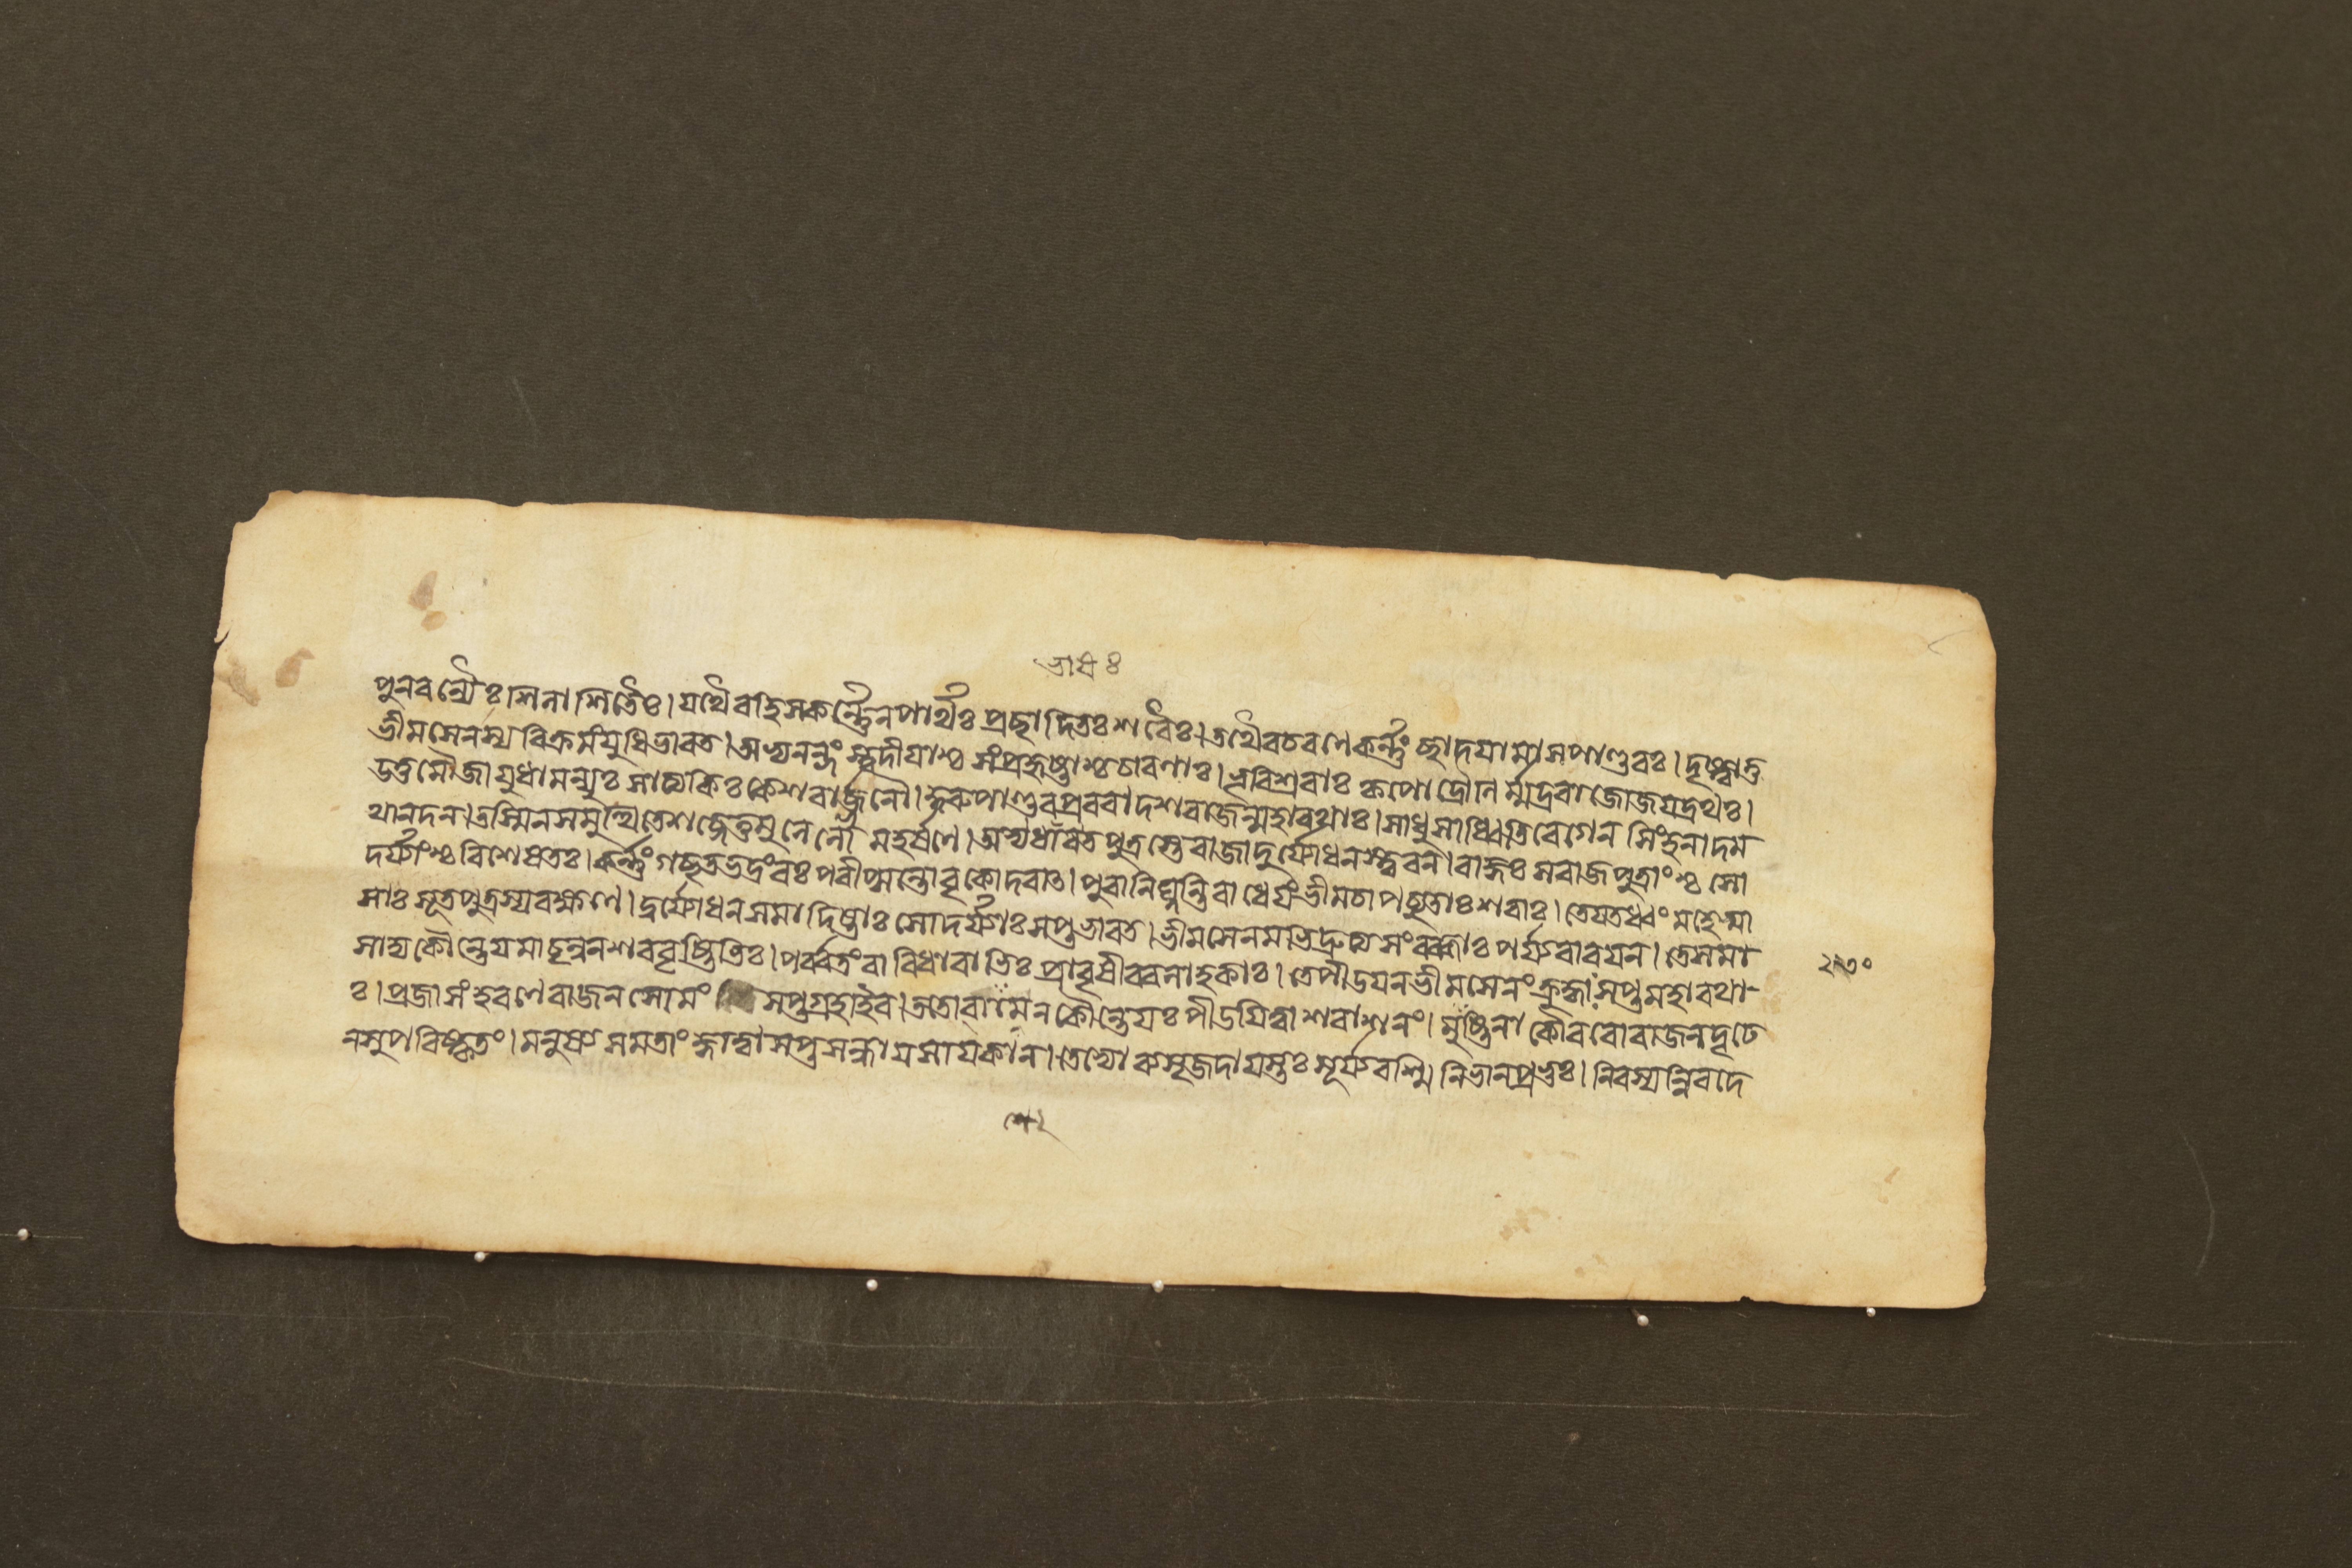 ভারঃ
পুনরন্যৈঃ শিলাশিতৈঃ। যথৈব হি স কর্ণ্ণেন পার্থঃ প্রচ্ছাদিতঃ শরৈঃ। তথৈব চ রণে কর্ণ্ণং ছাদয়ামাস পাণ্ডবঃ। দৃষ্ট্বা তু
ভীমসেনস্য বিক্রমং যুধি ভারত। অভ্যনন্দংস্ত্বদীয়াশ্চ সংপ্রহৃষ্টাশ্চ চারণাঃ। ভূরিশ্রবাঃ কৃপো দ্রৌণির্ম্মদ্ররাজো জয়দ্রথঃ।
উত্তমৌজা যুধামন্যুঃ সাত্যকিঃ কেশবার্জ্জুনৌ। কুরুপাণ্ডবপ্রবরা দশ রাজন্মহারথাঃ। সাধু সাধ্বিতি বেগেন সিংহনাদম
থানদন। তস্মিন সমুত্থিতে শব্দে তুমুলে লোমহর্ষণে। অভ্যধাবত পুত্রস্তে রাজা দুর্য্যোধনস্ত্বরন। রাজ্ঞঃ সরাজপুত্রাংশ্চ সো
দর্য্যাংশ্চ বিশেষতঃ। কর্ণ্ণং গচ্ছত ভদ্রং বঃ পরীপ্সন্তো বৃকোদরাত। পুরা নিঘ্নন্তি রাধেয়ং ভীমচাপচ্যুতাঃ শরাঃ। তে যতধ্বং মহেষ্বা
সাঃ সূতপুত্রস্য রক্ষণে। দুর্য্যোধনসমাদিষ্টাঃ সোদর্য্যাঃ সপ্ত ভারত। ভীমসেনমভিদ্রুত্য সংরব্ধাঃ পর্য্যবারয়ন। তে সমা
সাদ্য কৌন্তেয়মাবৃন্বন শরবৃষ্টিভিঃ। পর্ব্বতং বারিধারাভিঃ প্রাবৃষীব বলাহকাঃ। তে পীডয়ন ভীমসেনং ক্রুদ্ধাঃ সপ্ত মহারথা
২৩০
ঃ। প্রজাসংহরণে রাজন সোমং সপ্তগ্রহা ইব। ততো বামেন কৌন্তেয়ঃ পীডয়িত্বা শরাশনং। মুষ্টিনা কৌরবো রাজন দৃঢে
ন সুপরিষ্কৃতং। মনুষ্যসমতাং জ্ঞাত্বা সপ্ত সন্ধায় সায়কান। তেভ্যো ব্যসৃজদায়স্তঃ সূর্য্যরশ্মিনিভান প্রভুঃ। নিরস্যন্নিব দে